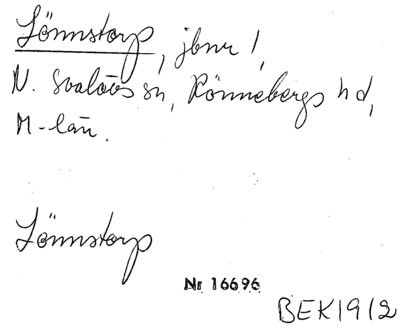 Lönnstorp, jbnr 1,
N. Svalövs sn, Rönnebergs hd,
M-län.
Lönnstorp
Nr 16696
BEK1912